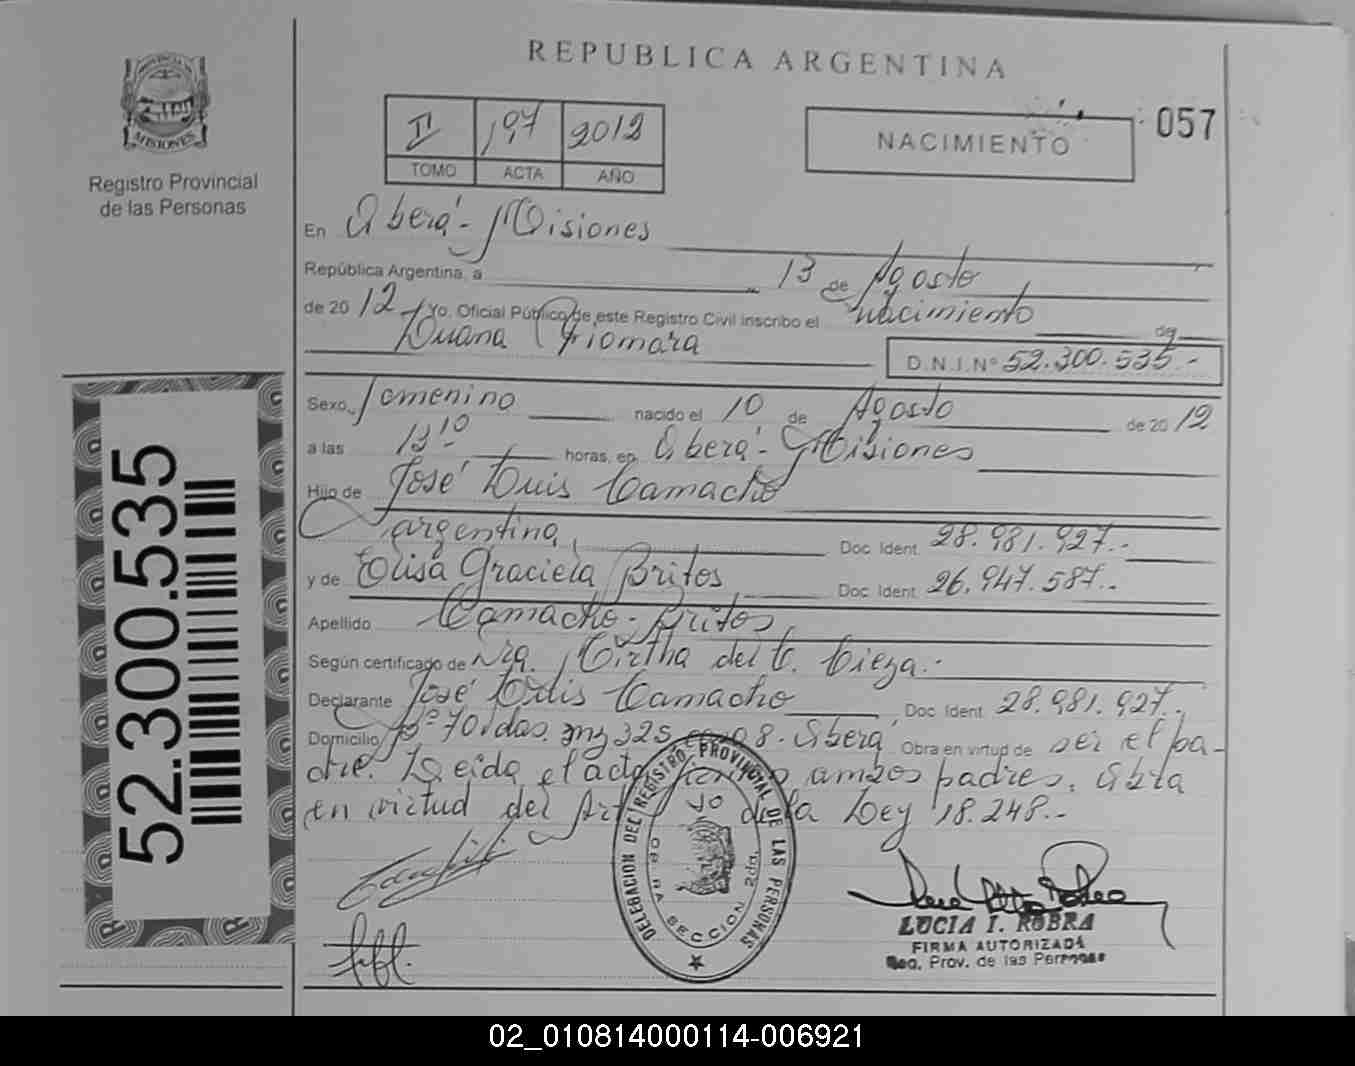 REPUBLICA ARGENTINA
MISIONES
Registro Provincial
de las Personas
II 197 2012
TOMO ACTA AÑO
NACIMIENTO
057
En Oberá - Misiones
República Argentina, a 13 de Agosto
de 2012 Yo, Oficial Público de este Registro Civil inscribo el nacimiento de
Luana Xiomara
D.N.I.Nº 52.300.535.-
Sexo Femenino nacido el 10 de Agosto de 2012
a las 13 10 horas, en Oberá - Misiones
Hijo de José Luis Camacho
argentino, Doc. Ident. 28.981.927.-
y de Elisa Graciela Britos Doc. Ident. 26.947.587.-
Apellido Camacho - Britos
Según certificado de Mirtha del C. Cieza.-
Declarante José Luis Camacho Doc. Ident. 28.981.927.
Domicilio 70 mz 325 casa 8. Oberá Obra en virtud de ser el pa-
dre. Leida el acta ambos padres. Obra
en virtud del Art de la Ley 18.248.-
DELEGACION DEL REGISTRO PROVINCIAL DE LAS PERSONAS
SECCION 2da.
LUCIA I. ROBRA
FIRMA AUTORIZADA
Reg. Prov. de las Personas
52.300.535
02_010814000114-006921